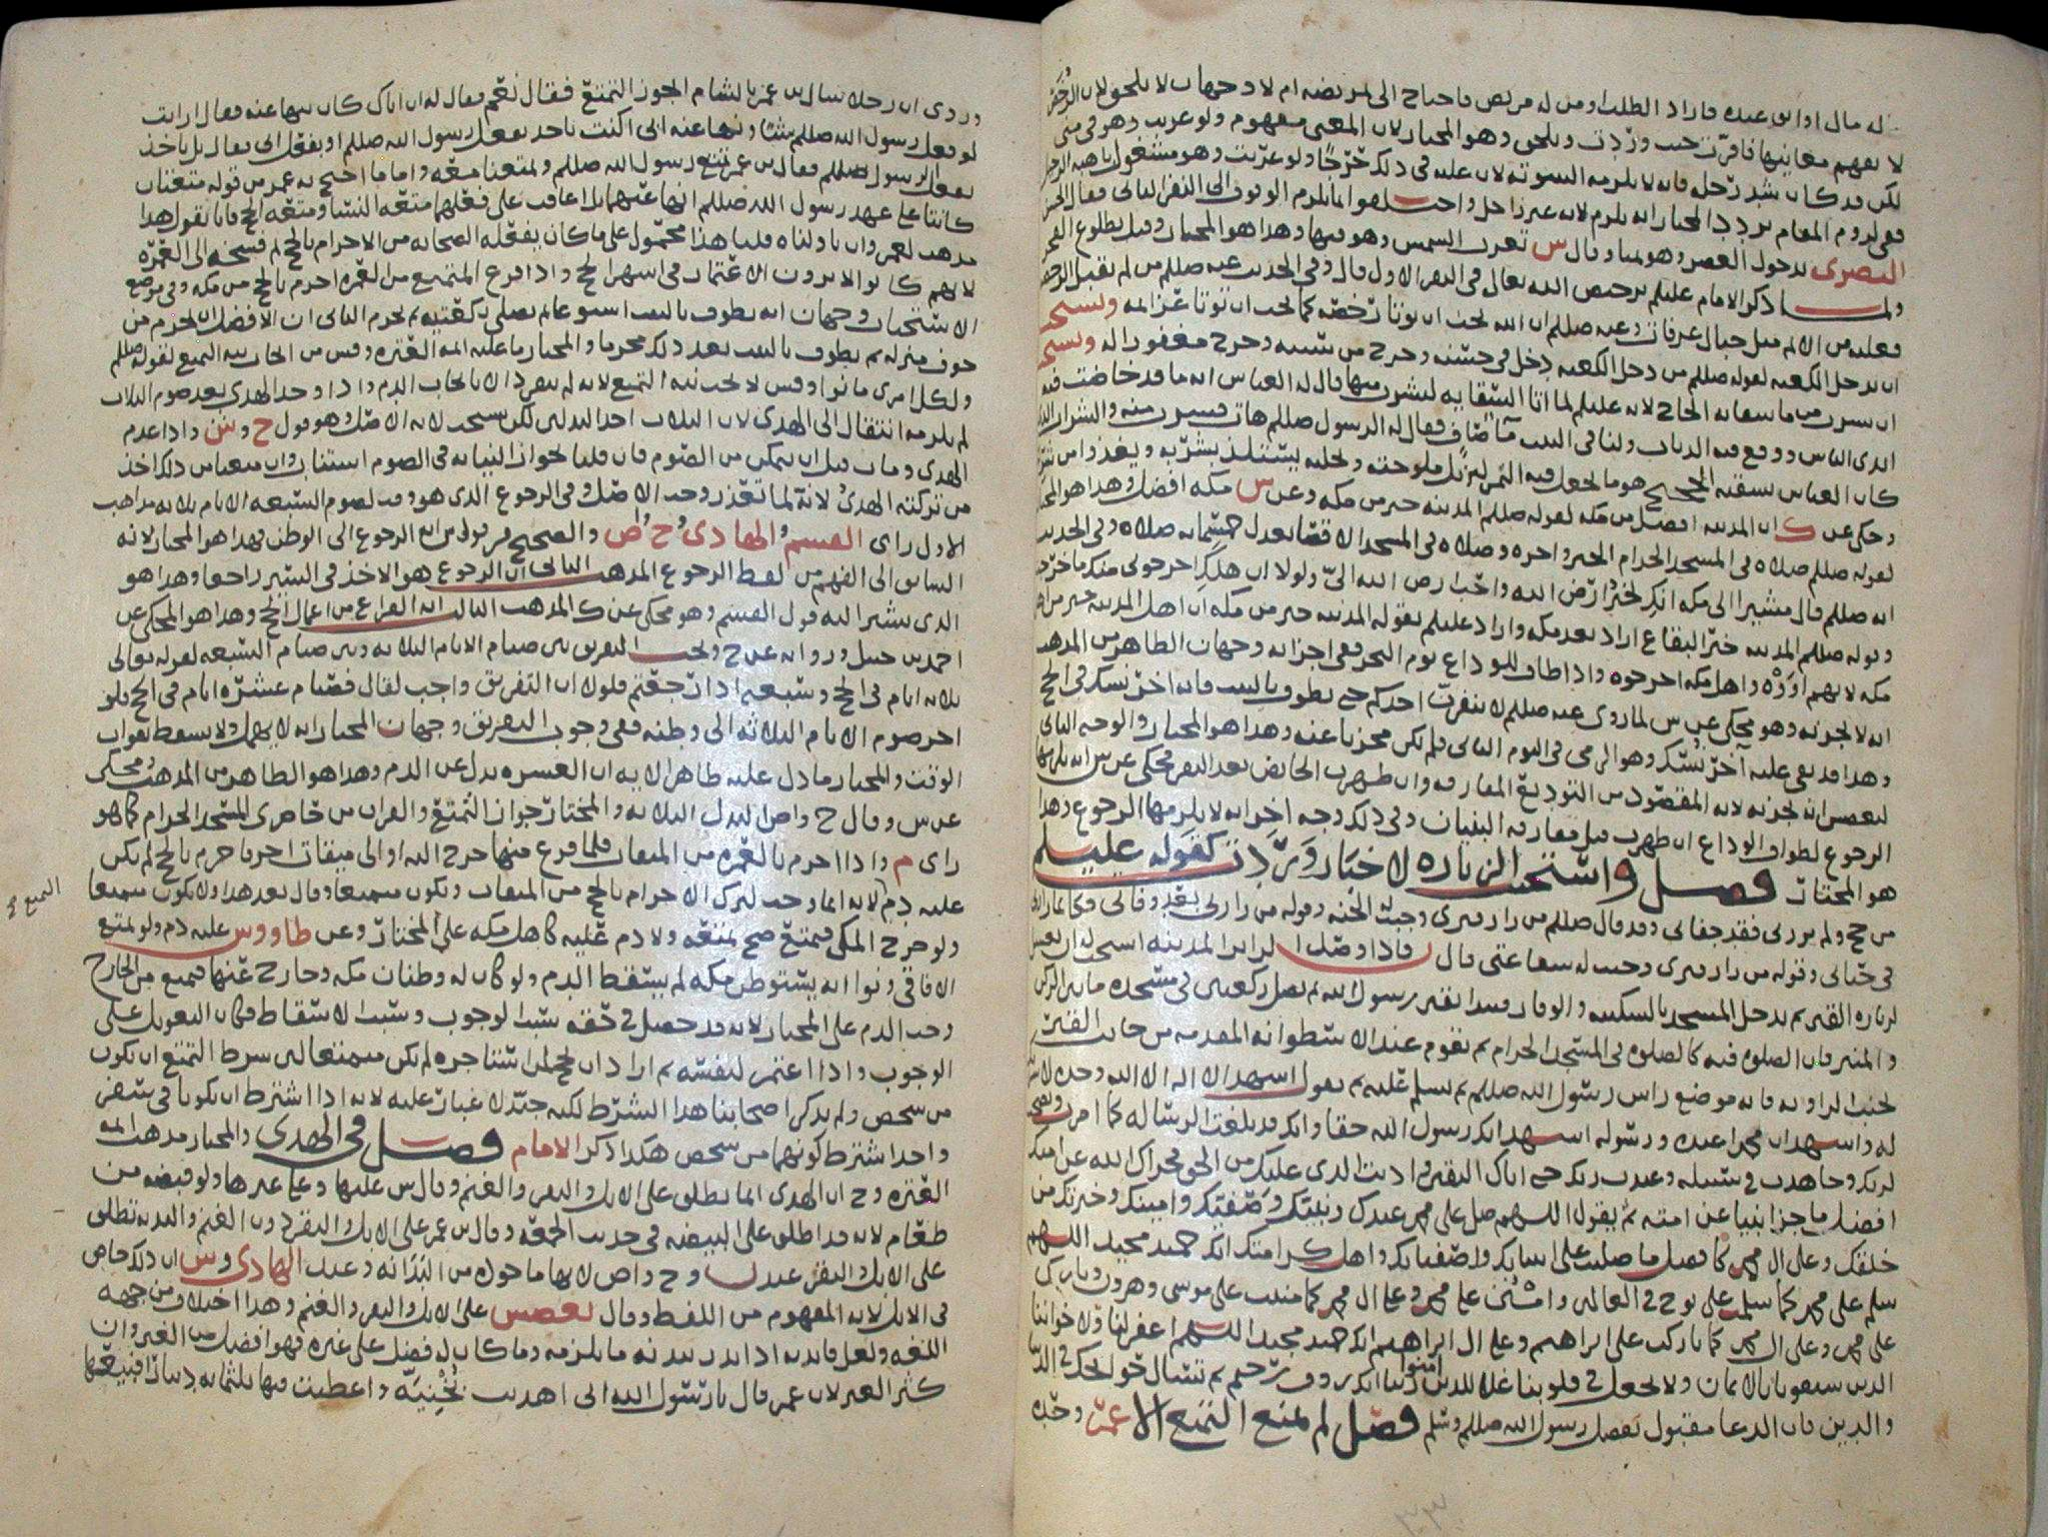 له مال او ابن عبده فاراد الطلب او من له مريض فاحتاج الى تمريضه ام لا وجهان لا يلحق لان الرخص
لا يفهم معانيها فاقرت حيث وردت ويلحق وهو المختار لان المعنى مفهوم ولو غربت وهو في منى
لكن قد كان شد رحله فانه لا يلزمه البيتوتة لان عليه في ذلك حرجا ولو غربت وهو مشغول باهبة الرحيل
ففي لزوم المقام تردد المختار انه يلزم لانه غير راحل واختلفوا متى يلزم الوقوف الى النفر الثاني فقال الحسن
البصري بدخول العصر وهو بمنا وقال س تغرب الشمس وهو فيها وهذا هو المختار وقيل بطلوع الفجر
ولما ذكر الامام عليلم ترخيص الله تعالى في النفر الاول قال وفي الحديث عنه صللم من لم يقبل الرخصة
فعليه من الاثم مثل جبال عرفات وعنه صللم ان الله يحب ان تؤتا رخصه كما يحب ان تؤتا عزائمه ويستحب
ان يدخل الكعبة لقوله صللم من دخل الكعبة دخل في حسنة وخرج من سيئة وخرج مغفورا له ويستحب
ان يشرب من ماء سقاية الحاج لانه عليلم لما اتا السقاية ليشرب منها قال له العباس انه ماء قد خاضت فيه
ايدي الناس ووقع فيه الذباب ولنا في البيت ماء صاف فقال له الرسول صللم هات فشرب منه والشراب الذي
كان العباس يسقيه الحجيج هو ما يجعل فيه التمر ليزيل ملوحته ويحليه يستلذ بشربه
وحكي عن ك ان المدينة افضل من مكة لقوله صللم المدينة خير من مكة وعن س مكة افضل وهذا هو المختار
لقوله صللم صلاة في المسجد الحرام وصلاة في المسجد الاقصا تعدل خمسمائة صلاة وفي الحديث
انه صللم قال مشيرا الى مكة انك لخير ارض الله واحب ارض الله الي ولولا ان اهلك اخرجوني منك ما خرجت
وقوله صللم المدينة خير البقاع اراد بعد مكة واراد عليلم بقوله المدينة خير من مكة ان اهل المدينة خير من اهل
مكة لانهم اووه واهل مكة اخرجوه واذا طاف للوداع يوم النحر ففي اجزائه وجهان الظاهر من المذهب
انه لا يجزئه وهو محكي عن س لما روي عنه صللم لا ينفرن احدكم حتى يطوف بالبيت فانه اخر نسك في الحج
وهذا قد بقي عليه آخر نسك وهو الرمي في اليوم الثاني فلم يكن مجزيا عنه وهذا هو المختار والوجه الثاني
لبعض انه يجزئه لانه المقصود من التوديع المفارقة وان طهرت الحائض بعد النفر فحكي عن س انه يلزمها
الرجوع لطواف الوداع ان طهرت قبل مفارقة البنيان وفي ذلك وجه اخر انه لا يلزمها الرجوع وهذا
هو المختار فصل واستحب الزيارة لاخبار وردت كقوله عليلم
من حج ولم يزرني فقد جفاني وقد قال صللم من زار قبري وجبت له الجنة وقوله من زارني بعد وفاتي فكانما زارني
في حياتي وقوله من زار قبري وجبت له شفاعتي قال فاذا وصل الزائر المدينة استحب له ان يغتسل
لزيارة القبر ثم يدخل المسجد بالسكينة والوقار فيبدا بقبر رسول الله ثم يصلي ركعتين في مسجده ما بين القبر
والمنبر فان الصلوة فيه كالصلوة في المسجد الحرام ثم يقوم عند الاسطوانة المقدمة من جانب القبر
لجنب الزاوية فانه موضع راس رسول الله صللم ثم يسلم عليه ثم يقول اشهد الا اله الا الله وحده لا شريك
له واشهد ان محمدا عبده ورسوله اشهد انك رسول الله حقا وانك قد بلغت الرسالة كما امرت ونصحت
لربك وجاهدت في سبيله وعبدت ربك حتى اتاك اليقين واديت الذي عليك من الحق فجزاك الله عن امتك
افضل ما جزا نبيا عن امته ثم يقول اللهم صل على محمد عبدك ونبيك وصفيك وامينك وخيرتك من
خلقك وعلى ال محمد كافضل ما صليت على انبيائك واصفيائك واهل كرامتك انك حميد مجيد اللهم
سلم على محمد كما سلمت على نوح في العالمين وامنن على محمد وعلى ال محمد كما مننت على موسى وهرون وبارك
على محمد وعلى ال محمد كما باركت على ابراهيم وعلى ال ابراهيم انك حميد مجيد اللهم اغفر لنا ولاخواننا
الذين سبقونا بالايمان ولا تجعل في قلوبنا غلا للذين امنوا ربنا انك رؤف رحيم ثم تسال حوائجك في الدنيا
والدين فان الدعا مقبول بفضل رسول الله صللم وسلم فصل لم يمنع التمتع الا عمر وحده
وروي ان رجلا سال بن عمر بالشام ايجوز التمتع فقال نعم فقال له ان اباك كان ينها عنه فقال ارايت
لو فعل رسول الله صللم شيئا ونها عنه ابي اكنت تاخذ بفعل رسول الله صللم او بفعل ابي فقال بل ناخذ
بفعل رسول الله صللم فقال بن عمر تمتع رسول الله صللم وتمتعنا معه واما ما احتج به عمر من قوله متعتان
كانتا على عهد رسول الله صللم انها عنهما بل اعاقب على فعلهما متعة النسا ومتعة الحج فانا نقول هذا
مذهب لعمر وان تاولناه قلنا هذا محمول على ما كان يفعله الصحابة من الاحرام بالحج ثم فسخه الى العمرة
لانهم كانوا لا يرون الاعتمار في اشهر الحج واذا فرغ المتمتع من العمرة احرم بالحج من مكة وفي موضع
الاستحباب وجهان انه يطوف بالبيت اسبوعا ثم يصلي ركعتيه ثم يحرم الثاني ان الافضل ان يحرم من
جوف منزله ثم يطوف بالبيت بعد ذلك محرما والمختار ما عليه ائمة العترة وس من ايجاب نية التمتع لقوله صللم
ولكل امرئ ما نوا وقيل لا يجب نية التمتع لانه لم ينفرد الا بايجاب الدم واذا وجد الهدي بعد صوم الثلاث
لم يلزمه انتقال الى الهدي لان الثلاث احد البدلين لكن يستحب لانه الاصل وهو قول ح وش واذا عدم
الهدي ومات قبل ان يتمكن من الصوم فان قلنا بجواز النيابة في الصوم استناب وان منعنا من ذلك اخذ
من تركته الهدي لانه لما تعذر وجب الاصل وفي الرجوع الذي هو وقت لصوم السبعة الايام ثلاثة مذاهب
الاول راي القسم والهادي وح وص والصحيح من قولي س انه الرجوع الى الوطن فهذا هو المختار لانه
السابق الى الفهم من لفظ الرجوع المذهب الثاني ان الرجوع هو الاخذ في السير راجعا وهذا هو
الذي يشير اليه قول القسم وهو محكي عن ك المذهب الثالث انه الفراغ من اعمال الحج وهذا هو المحكي عن
احمد بن حنبل ورواية عن ح ويجب التفريق بين صيام الايام الثلاثة وبين صيام السبعة لقوله تعالى
ثلاثة ايام في الحج وسبعة اذا رجعتم فلولا ان التفريق واجب لقال فصيام عشرة ايام في الحج فلو
اخر صوم الايام الثلاثة الى وطنه ففي وجوب التفريق وجهان المختار انه لا يهمل ولا يسقط بفوات
الوقت والمختار ما دل عليه ظاهر الاية ان العشرة بدل عن الدم وهذا هو الظاهر من المذهب ومحكي
عن س وقال ح واص البدل الثلاثة والمختار جواز التمتع والقران من حاضري المسجد الحرام كما هو
راي م واذا احرم بالعمرة من الميقات فلما فرغ منها خرج اليه او الى ميقات اخر فاحرم بالحج لم يكن
عليه دم لانه انما وجب لترك الاحرام بالحج من الميقات ويكون متمتعا وقال بعد هذا ولا يكون متمتعا
ولو خرج المكي فتمتع صح تمتعه ولا دم عليه كاهل مكة على المختار وعن طاووس عليه دم ولو تمتع
الافاقي ونوا انه يستوطن مكة لم يسقط الدم ولو كان له وطنان مكة وخارج عنها فتمتع من الخارج
وجب الدم على المختار لانه قد حصل في حقه سبب الوجوب وسبب الاسقاط فكان التعويل على
الوجوب واذا اعتمر لنفسه ثم اراد ان يحج لمن استاجره لم يكن متمتعا لان شرط التمتع ان يكون
من شخص ولم يذكر اصحابنا هذا الشرط لكنه جيد لا غبار عليه لانه اذا اشترط ان يكونا في سفر
واحد اشترط كونهما من شخص هكذا ذكر الامام فصل في الهدي والمختار مذهب ائمة
العترة وح ان الهدي انما يطلق على الابل والبقر والغنم وقال س عليها وعلى غيرها ولو قبضة من
طعام لانه قد اطلق على البيضة في حديث الجمعة وقال بن عمر على الابل والبقر دون الغنم والبدنة تطلق
على الابل والبقر عندنا وح واص لانها ماخوذة من البدانة وعند الهادي وس ان ذلك خاص
في الابل لانه المفهوم من اللفظ وقال بعضهم على الابل والبقر والغنم وهذا اختلاف من جهة
اللغة ولعل فائدته اذا نذر بدنة ما يلزمه وما كان له فضل على غيره فهو افضل من الغير وان
كثر الغير لان عمر قال يا رسول الله اني اهديت نجيبة واعطيت فيها ثلثمائة دينار افنبيعها
التمتع